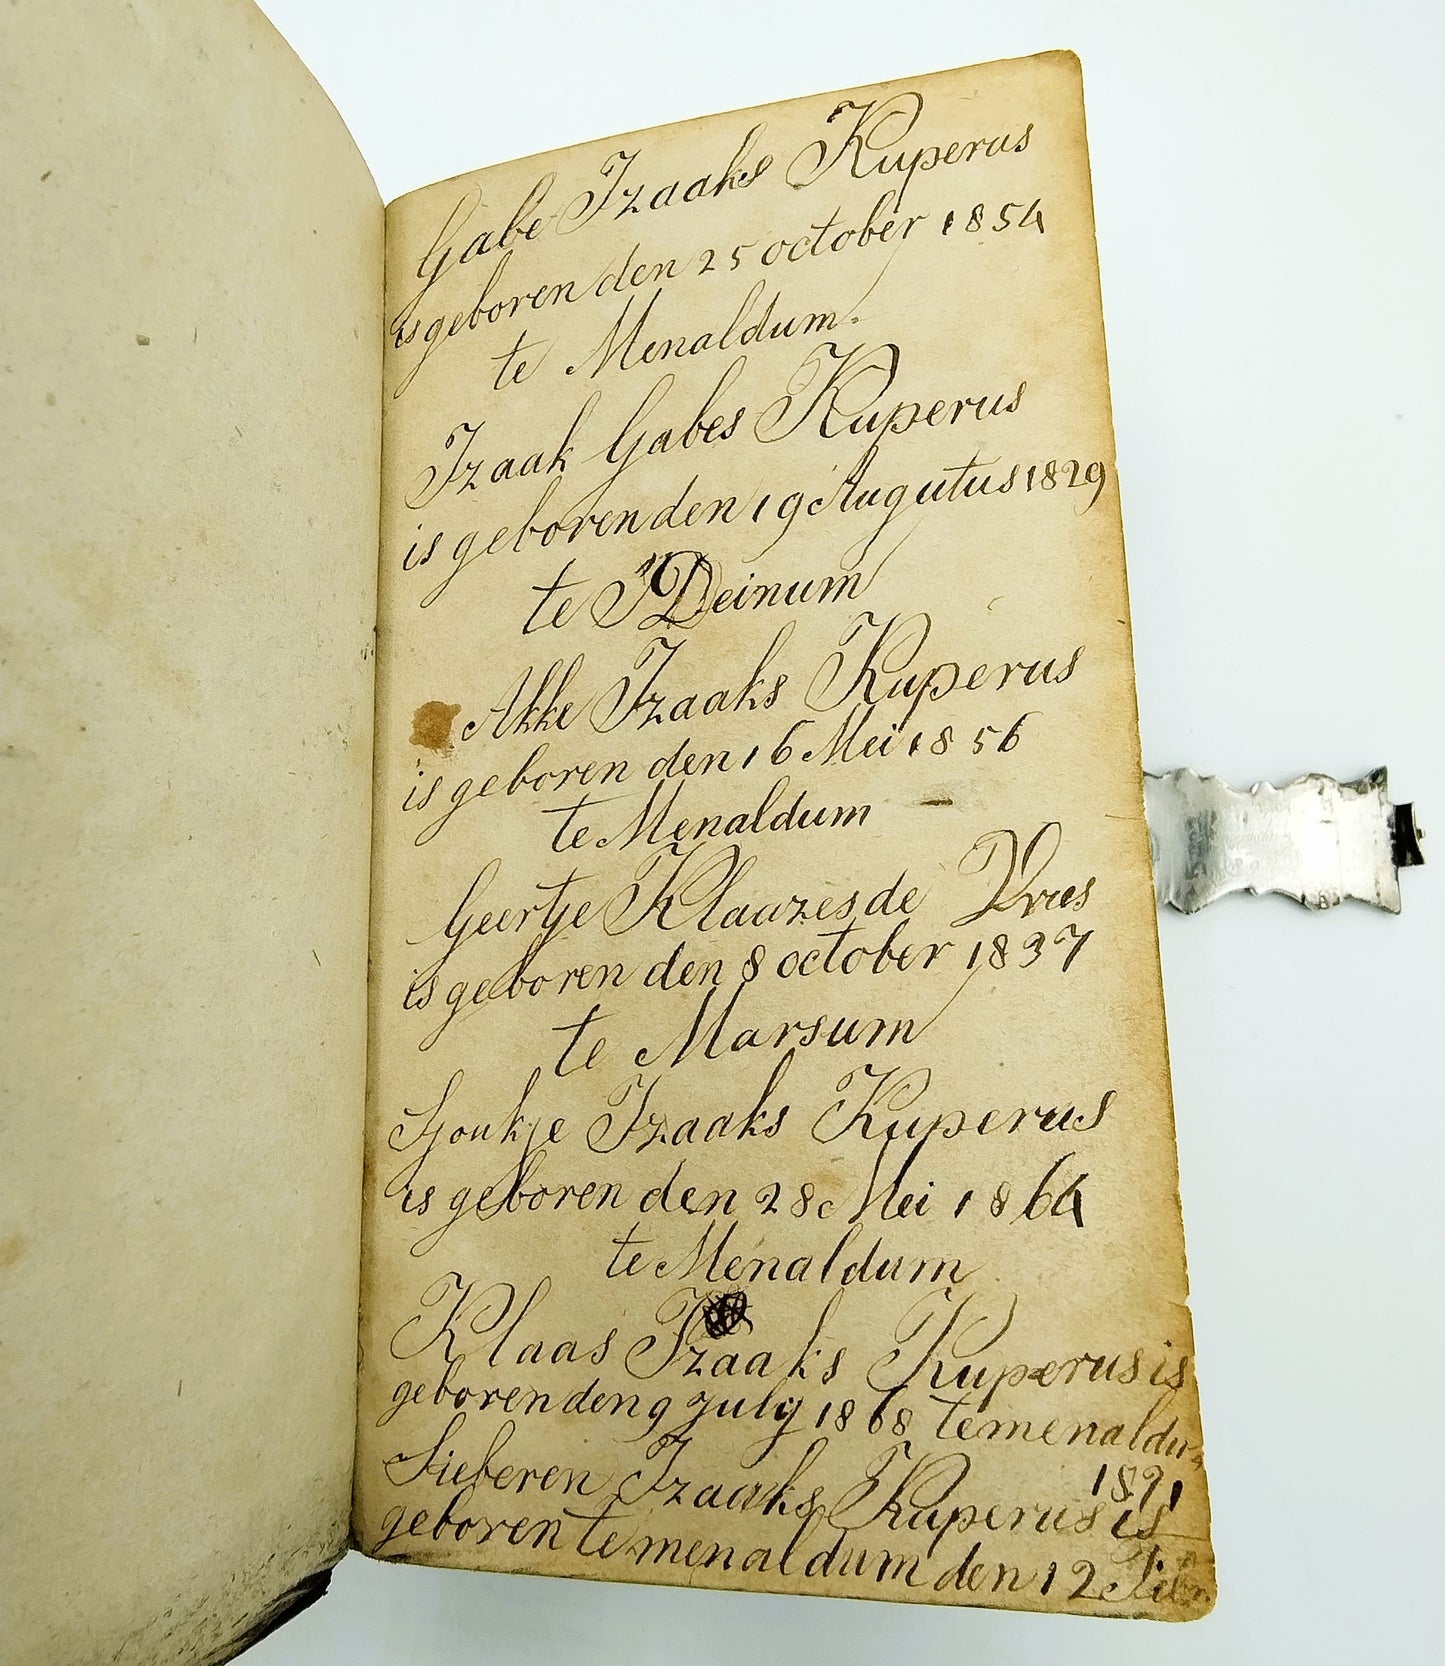 Gabe Izaaks Kuperus
is geboren den 25 october 1854
te Menaldum.
Izaak Gabes Kuperus
is geboren den 19 Augutus 1829
te Deinum
Akke Izaaks Kuperus
is geboren den 16 Mei 1856
te Menaldum
Geertje Klaazes de Vries
is geboren den 8 october 1837
te Marsum
Sjoukje Izaaks Kuperus
is geboren den 28 Mei 1864
te Menaldum
Klaas Izaaks Kuperus is
geboren den 9 july 1868 te menaldum
1871
Sieberen Izaaks Kuperus is
geboren te menaldum den 12